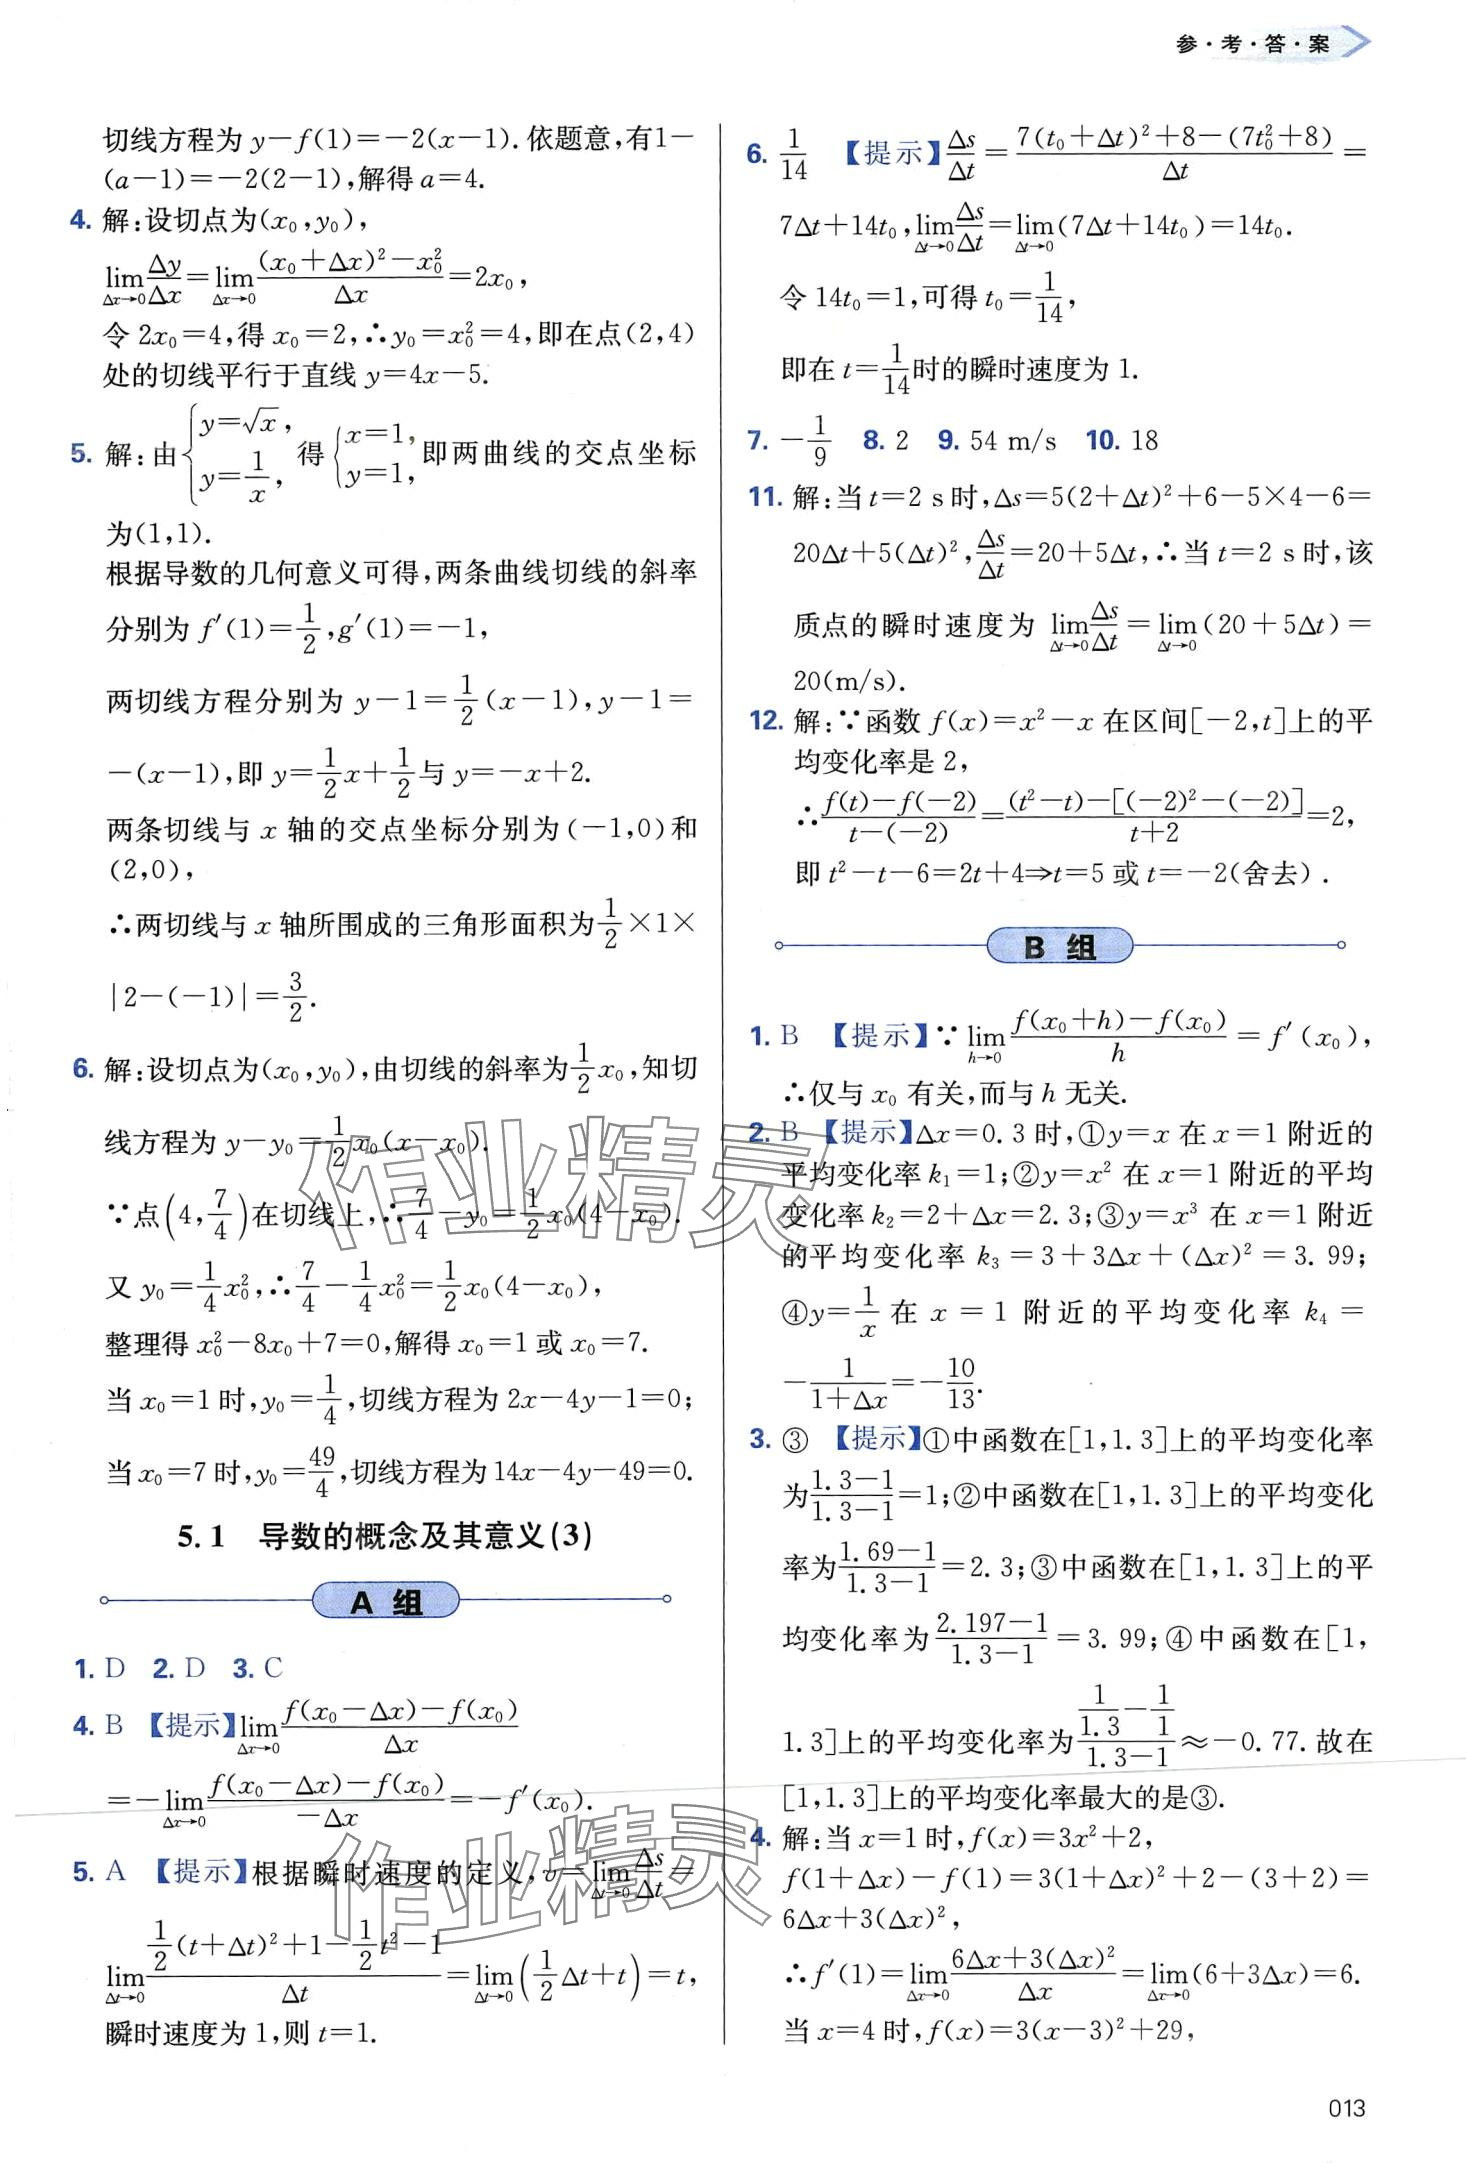 参·考·答·案
切线方程为 y−f(1)=−2(x−1).依题意,有1−
(a−1)=−2(2−1),解得 a=4.
4. 解:设切点为(x₀,y₀),
lim_{Δx→0} Δy/Δx = lim_{Δx→0} [(x₀+Δx)²−x₀²]/Δx =2x₀,
令 2x₀=4,得 x₀=2,∴y₀=x₀²=4,即在点(2,4)
处的切线平行于直线 y=4x−5.
5. 解:由{y=√x, y=1/x, 得{x=1, y=1, 即两曲线的交点坐标
为(1,1).
根据导数的几何意义可得,两条曲线切线的斜率
分别为 f′(1)=1/2,g′(1)=−1,
两切线方程分别为 y−1=1/2(x−1),y−1=
−(x−1),即 y=1/2x+1/2与 y=−x+2.
两条切线与 x 轴的交点坐标分别为(−1,0)和
(2,0),
∴两切线与 x 轴所围成的三角形面积为1/2×1×
|2−(−1)|=3/2.
6. 解:设切点为(x₀,y₀),由切线的斜率为1/2x₀,知切
线方程为 y−y₀=1/2x₀(x−x₀).
∵点(4,7/4)在切线上,∴7/4−y₀=1/2x₀(4−x₀).
又 y₀=1/4x₀²,∴7/4−1/4x₀²=1/2x₀(4−x₀),
整理得 x₀²−8x₀+7=0,解得 x₀=1 或 x₀=7.
当 x₀=1 时,y₀=1/4,切线方程为 2x−4y−1=0;
当 x₀=7 时,y₀=49/4,切线方程为 14x−4y−49=0.
5.1 导数的概念及其意义(3)
A 组
1. D 2. D 3. C
4. B 【提示】lim_{Δx→0} [f(x₀−Δx)−f(x₀)]/Δx
=−lim_{Δx→0} [f(x₀−Δx)−f(x₀)]/(−Δx)=−f′(x₀).
5. A 【提示】根据瞬时速度的定义,v=lim_{Δt→0} Δs/Δt=
lim_{Δt→0} [1/2(t+Δt)²+1−1/2t²−1]/Δt=lim_{Δt→0}(1/2Δt+t)=t,
瞬时速度为 1,则 t=1.
6. 1/14 【提示】Δs/Δt=[7(t₀+Δt)²+8−(7t₀²+8)]/Δt=
7Δt+14t₀,lim_{Δt→0} Δs/Δt=lim_{Δt→0}(7Δt+14t₀)=14t₀.
令 14t₀=1,可得 t₀=1/14,
即在 t=1/14时的瞬时速度为 1.
7. −1/9 8. 2 9. 54 m/s 10. 18
11. 解:当 t=2 s 时,Δs=5(2+Δt)²+6−5×4−6=
20Δt+5(Δt)²,Δs/Δt=20+5Δt,∴当 t=2 s 时,该
质点的瞬时速度为 lim_{Δt→0} Δs/Δt=lim_{Δt→0}(20+5Δt)=
20(m/s).
12. 解:∵函数 f(x)=x²−x 在区间[−2,t]上的平
均变化率是 2,
∴[f(t)−f(−2)]/[t−(−2)]={(t²−t)−[(−2)²−(−2)]}/(t+2)=2,
即 t²−t−6=2t+4⇒t=5 或 t=−2(舍去).
B 组
1. B 【提示】∵lim_{h→0} [f(x₀+h)−f(x₀)]/h=f′(x₀),
∴仅与 x₀ 有关,而与 h 无关.
2. B 【提示】Δx=0.3 时,①y=x 在 x=1 附近的
平均变化率 k₁=1;②y=x² 在 x=1 附近的平均
变化率 k₂=2+Δx=2.3;③y=x³ 在 x=1 附近
的平均变化率 k₃=3+3Δx+(Δx)²=3.99;
④y=1/x 在 x=1 附近的平均变化率 k₄=
−1/(1+Δx)=−10/13.
3. ③ 【提示】①中函数在[1,1.3]上的平均变化率
为(1.3−1)/(1.3−1)=1;②中函数在[1,1.3]上的平均变化
率为(1.69−1)/(1.3−1)=2.3;③中函数在[1,1.3]上的平
均变化率为(2.197−1)/(1.3−1)=3.99;④中函数在[1,
1.3]上的平均变化率为(1/1.3−1/1)/(1.3−1)≈−0.77.故在
[1,1.3]上的平均变化率最大的是③.
4. 解:当 x=1 时,f(x)=3x²+2,
f(1+Δx)−f(1)=3(1+Δx)²+2−(3+2)=
6Δx+3(Δx)²,
∴f′(1)=lim_{Δx→0} [6Δx+3(Δx)²]/Δx=lim_{Δx→0}(6+3Δx)=6.
当 x=4 时,f(x)=3(x−3)²+29,
013
作业精灵
作业精灵